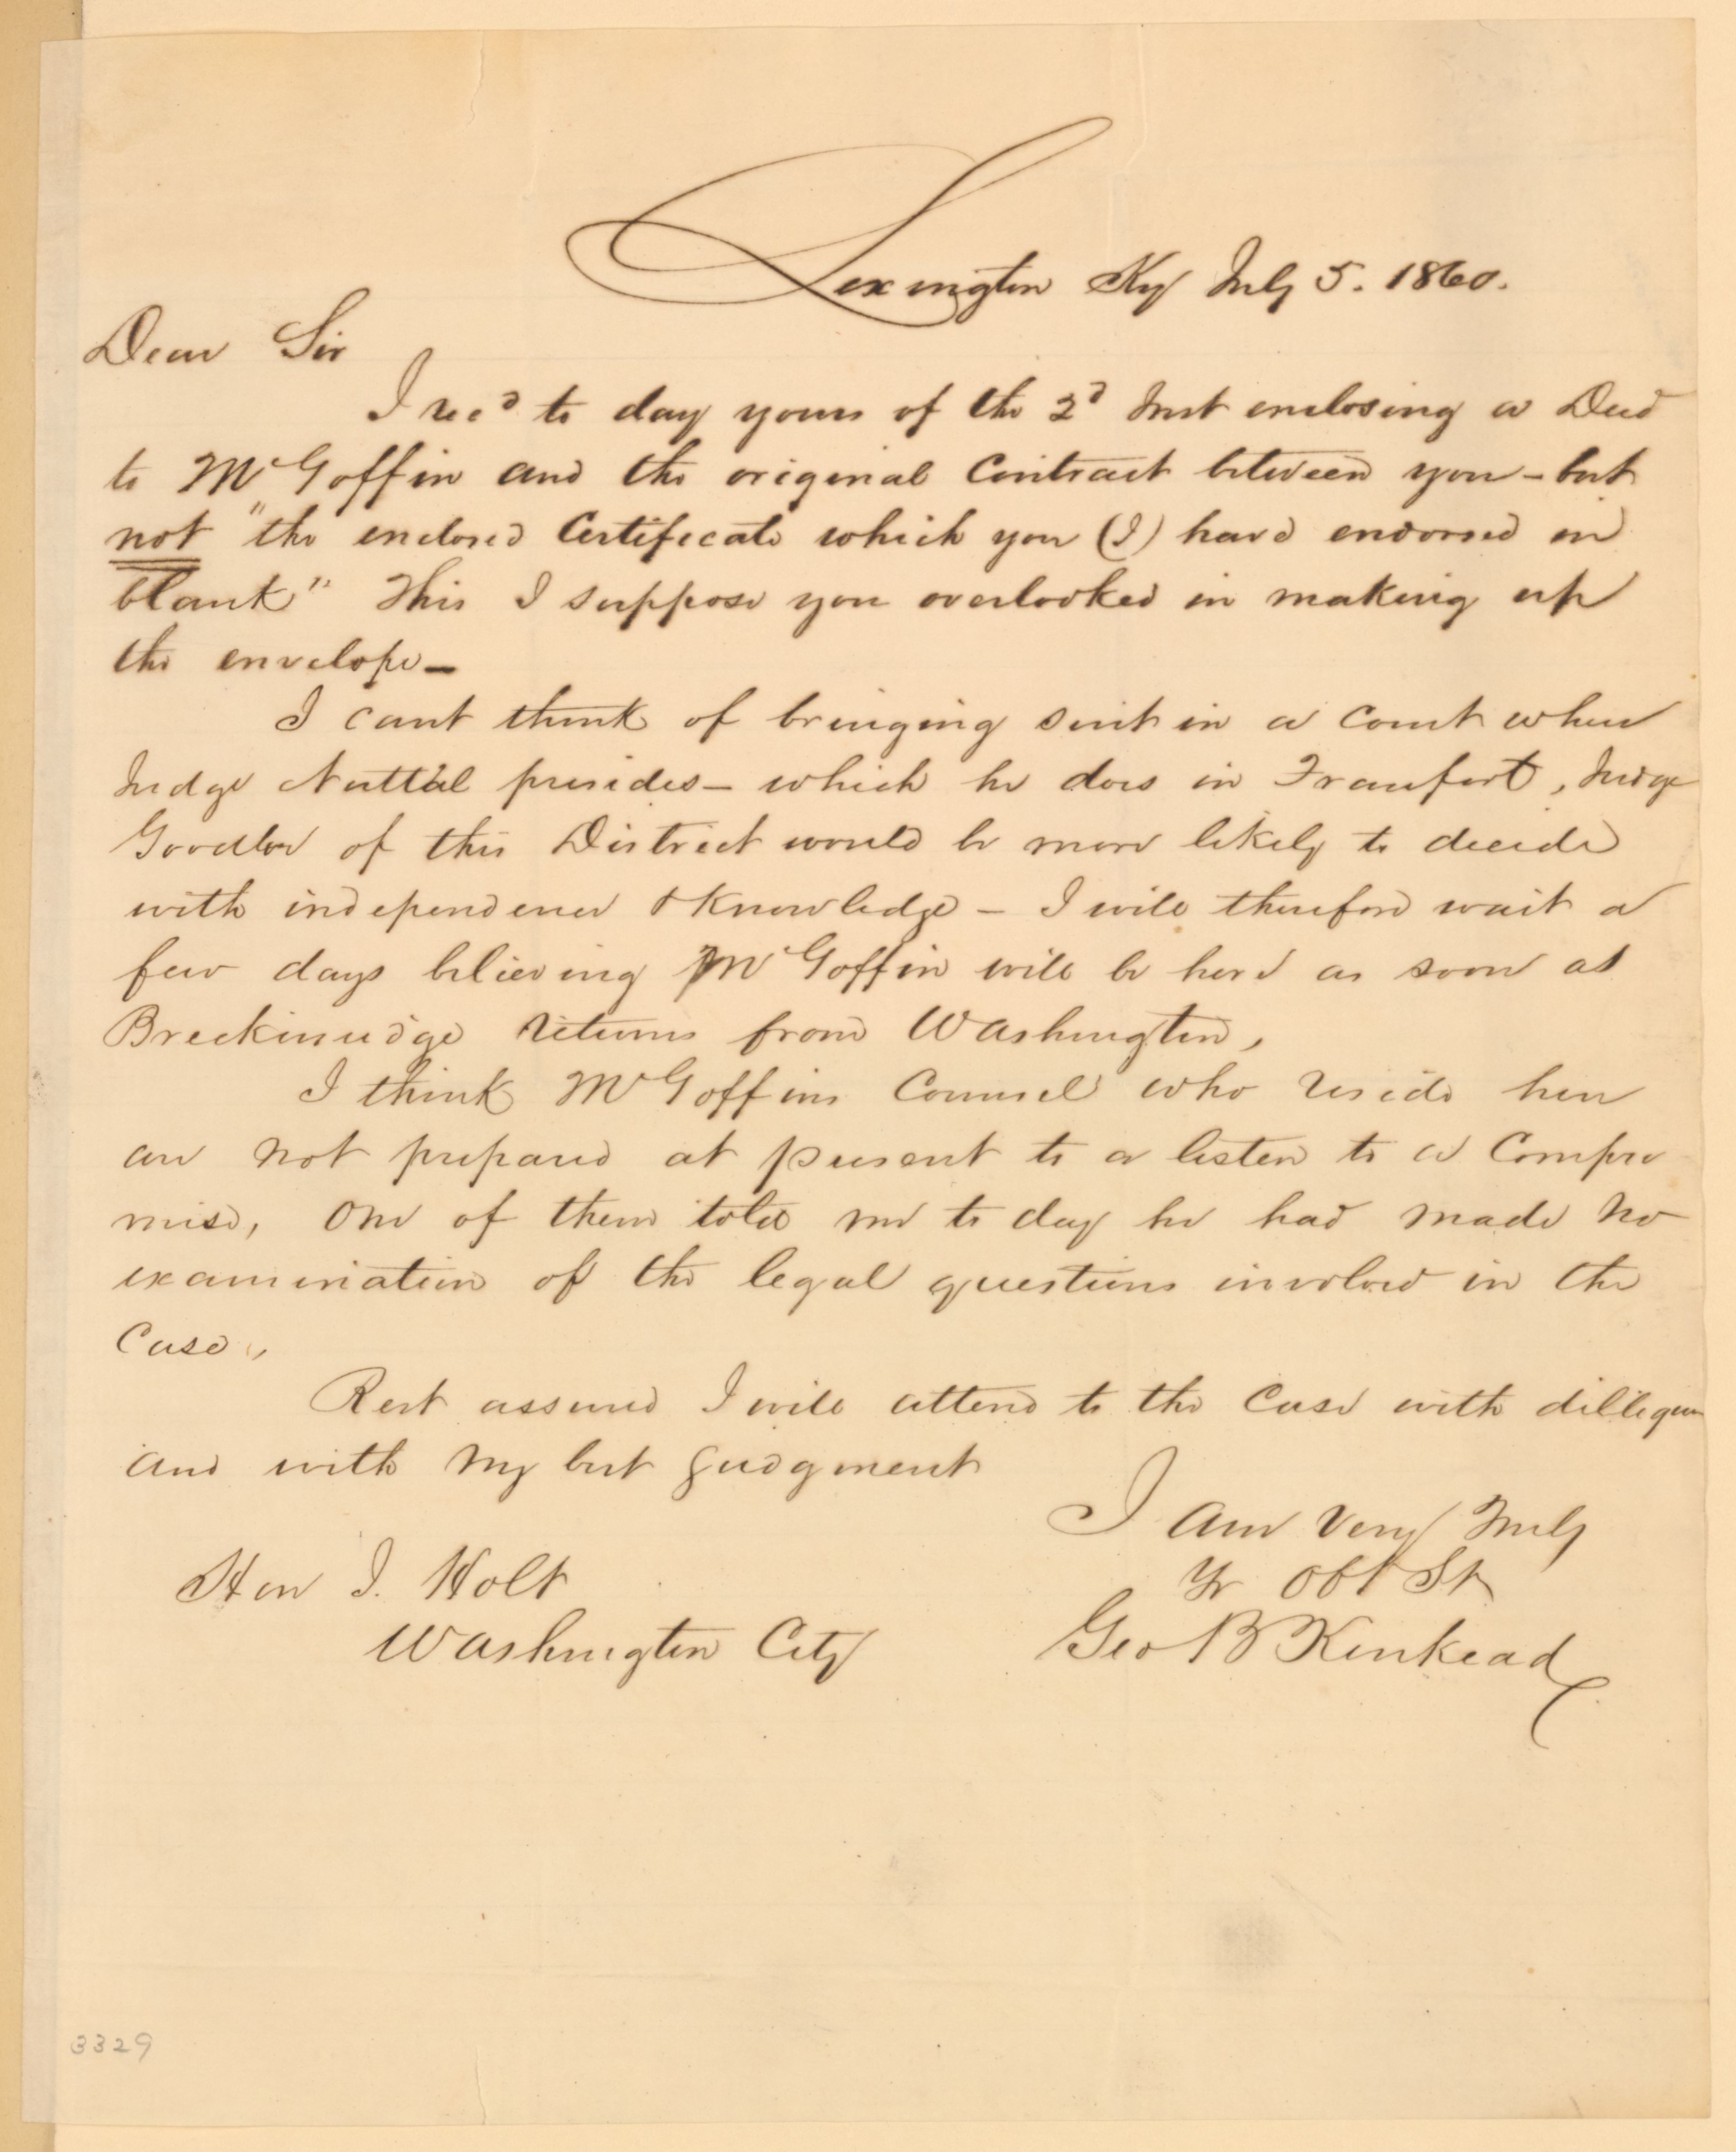 Lexington Ky July 5. 1860.
Dear Sir
I recd to day yours of the 2d Inst enclosing a Deed
to McGoffin and the original Contract between you - but
not "the enclosed Certificate which you (I) have endorsed in
blank" This I suppose you overlooked in making up
the envelope -
I cant think of bringing suit in a court where
Judge Nuttal presides - which he does in Frankfort, Judge
Goodloe of this District would be more likely to decide
with independence & Knowledge - I will therefore wait a
few days believing McGoffin will be here as soon as
Breckinridge returns from Washington,
I think McGoffins Counsel who reside here
are not prepared at present to a listen to a Compro
mise, One of them told me to day he had made no
examination of the legal questions involved in the
Case,
Rest assured I will attend to the Case with dilligence
and with my best judgment
I Am Very Truly
Yr Obt St
Geo B Kinkead
Hon J. Holt
Washington City
3329